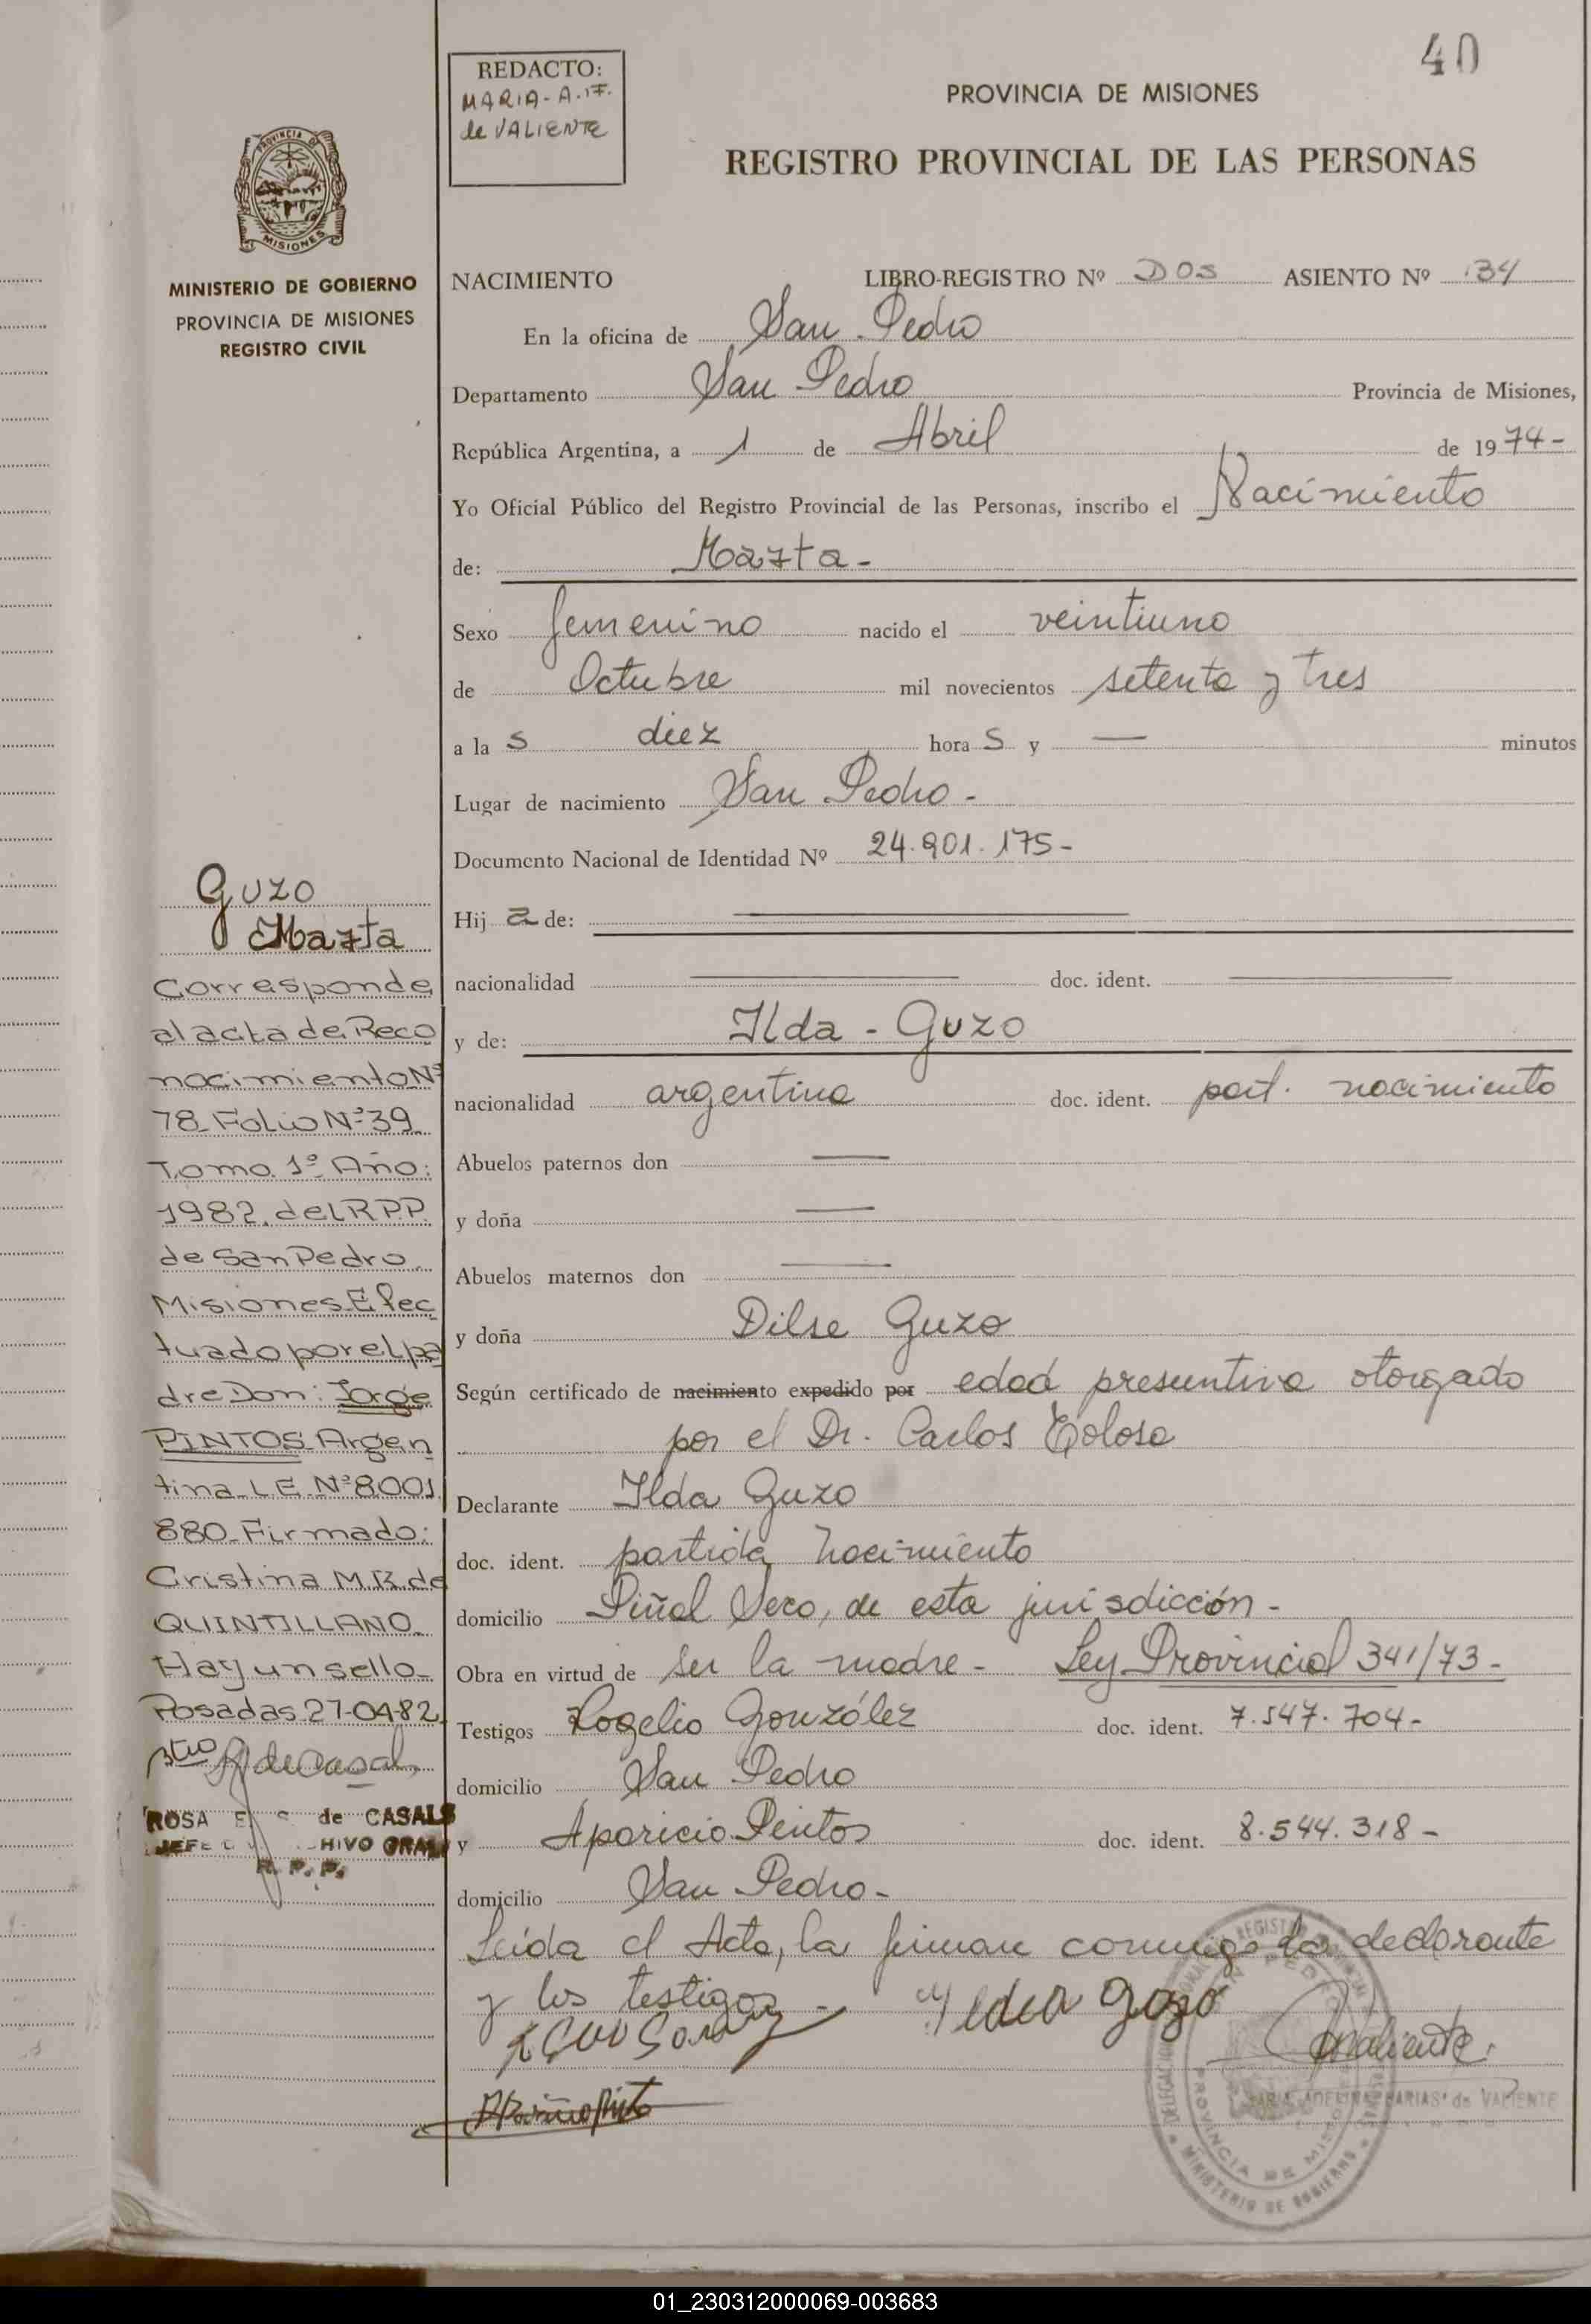 40
REDACTO:
MARIA-A.F.
de VALIENTE
PROVINCIA DE MISIONES
REGISTRO PROVINCIAL DE LAS PERSONAS
PROVINCIA D
MISIONES
MINISTERIO DE GOBIERNO
PROVINCIA DE MISIONES
REGISTRO CIVIL
NACIMIENTO LIBRO-REGISTRO Nº DOS ASIENTO Nº 134
En la oficina de San Pedro
Departamento San Pedro Provincia de Misiones,
República Argentina, a 1 de Abril de 1974-
Yo Oficial Público del Registro Provincial de las Personas, inscribo el Nacimiento
de: Marta-
Sexo femenino nacido el veintiuno
de Octubre mil novecientos setenta y tres
a la s diez hora s y — minutos
Lugar de nacimiento San Pedro-
Documento Nacional de Identidad Nº 24.901.175-
Hij a de: —
nacionalidad — doc. ident. —
y de: Ilda - Guzo
nacionalidad argentina doc. ident. part. nacimiento
Abuelos paternos don —
y doña —
Abuelos maternos don —
y doña Dilse Guzo
Según certificado de nacimiento expedido por edad presuntiva otorgado
por el Dr. Carlos Tolosa
Declarante Ilda Guzo
doc. ident. partida nacimiento
domicilio Piñal Seco, de esta jurisdicción-
Obra en virtud de ser la madre- Ley Provincial 341/73-
Testigos Rogelio González doc. ident. 7.547.704-
domicilio San Pedro
y Aparicio Pintos doc. ident. 8.544.318-
domicilio San Pedro-
Leída el Acta, la firman conmigo la declarante
y los testigos-
Guzo
Marta
Corresponde
al acta de Reco
nocimiento Nº
78 Folio Nº 39
Tomo 1º Año:
1982. del R.P.P.
de San Pedro
Misiones Efec
tuado por el pa
dre Don: Jorge
PINTOS Argen
tina L E Nº 8001
880 Firmado:
Cristina M.R. de
QUINTILLANO
Hay un sello
Posadas 27-04-82
ROSA E de CASALS
JEFE HIVO GRAL
R. P. P.
MARIA ADELINA FARIAS de VALIENTE
PROVINCIA DE MISIONES
MINISTERIO DE GOBIERNO
01_230312000069-003683